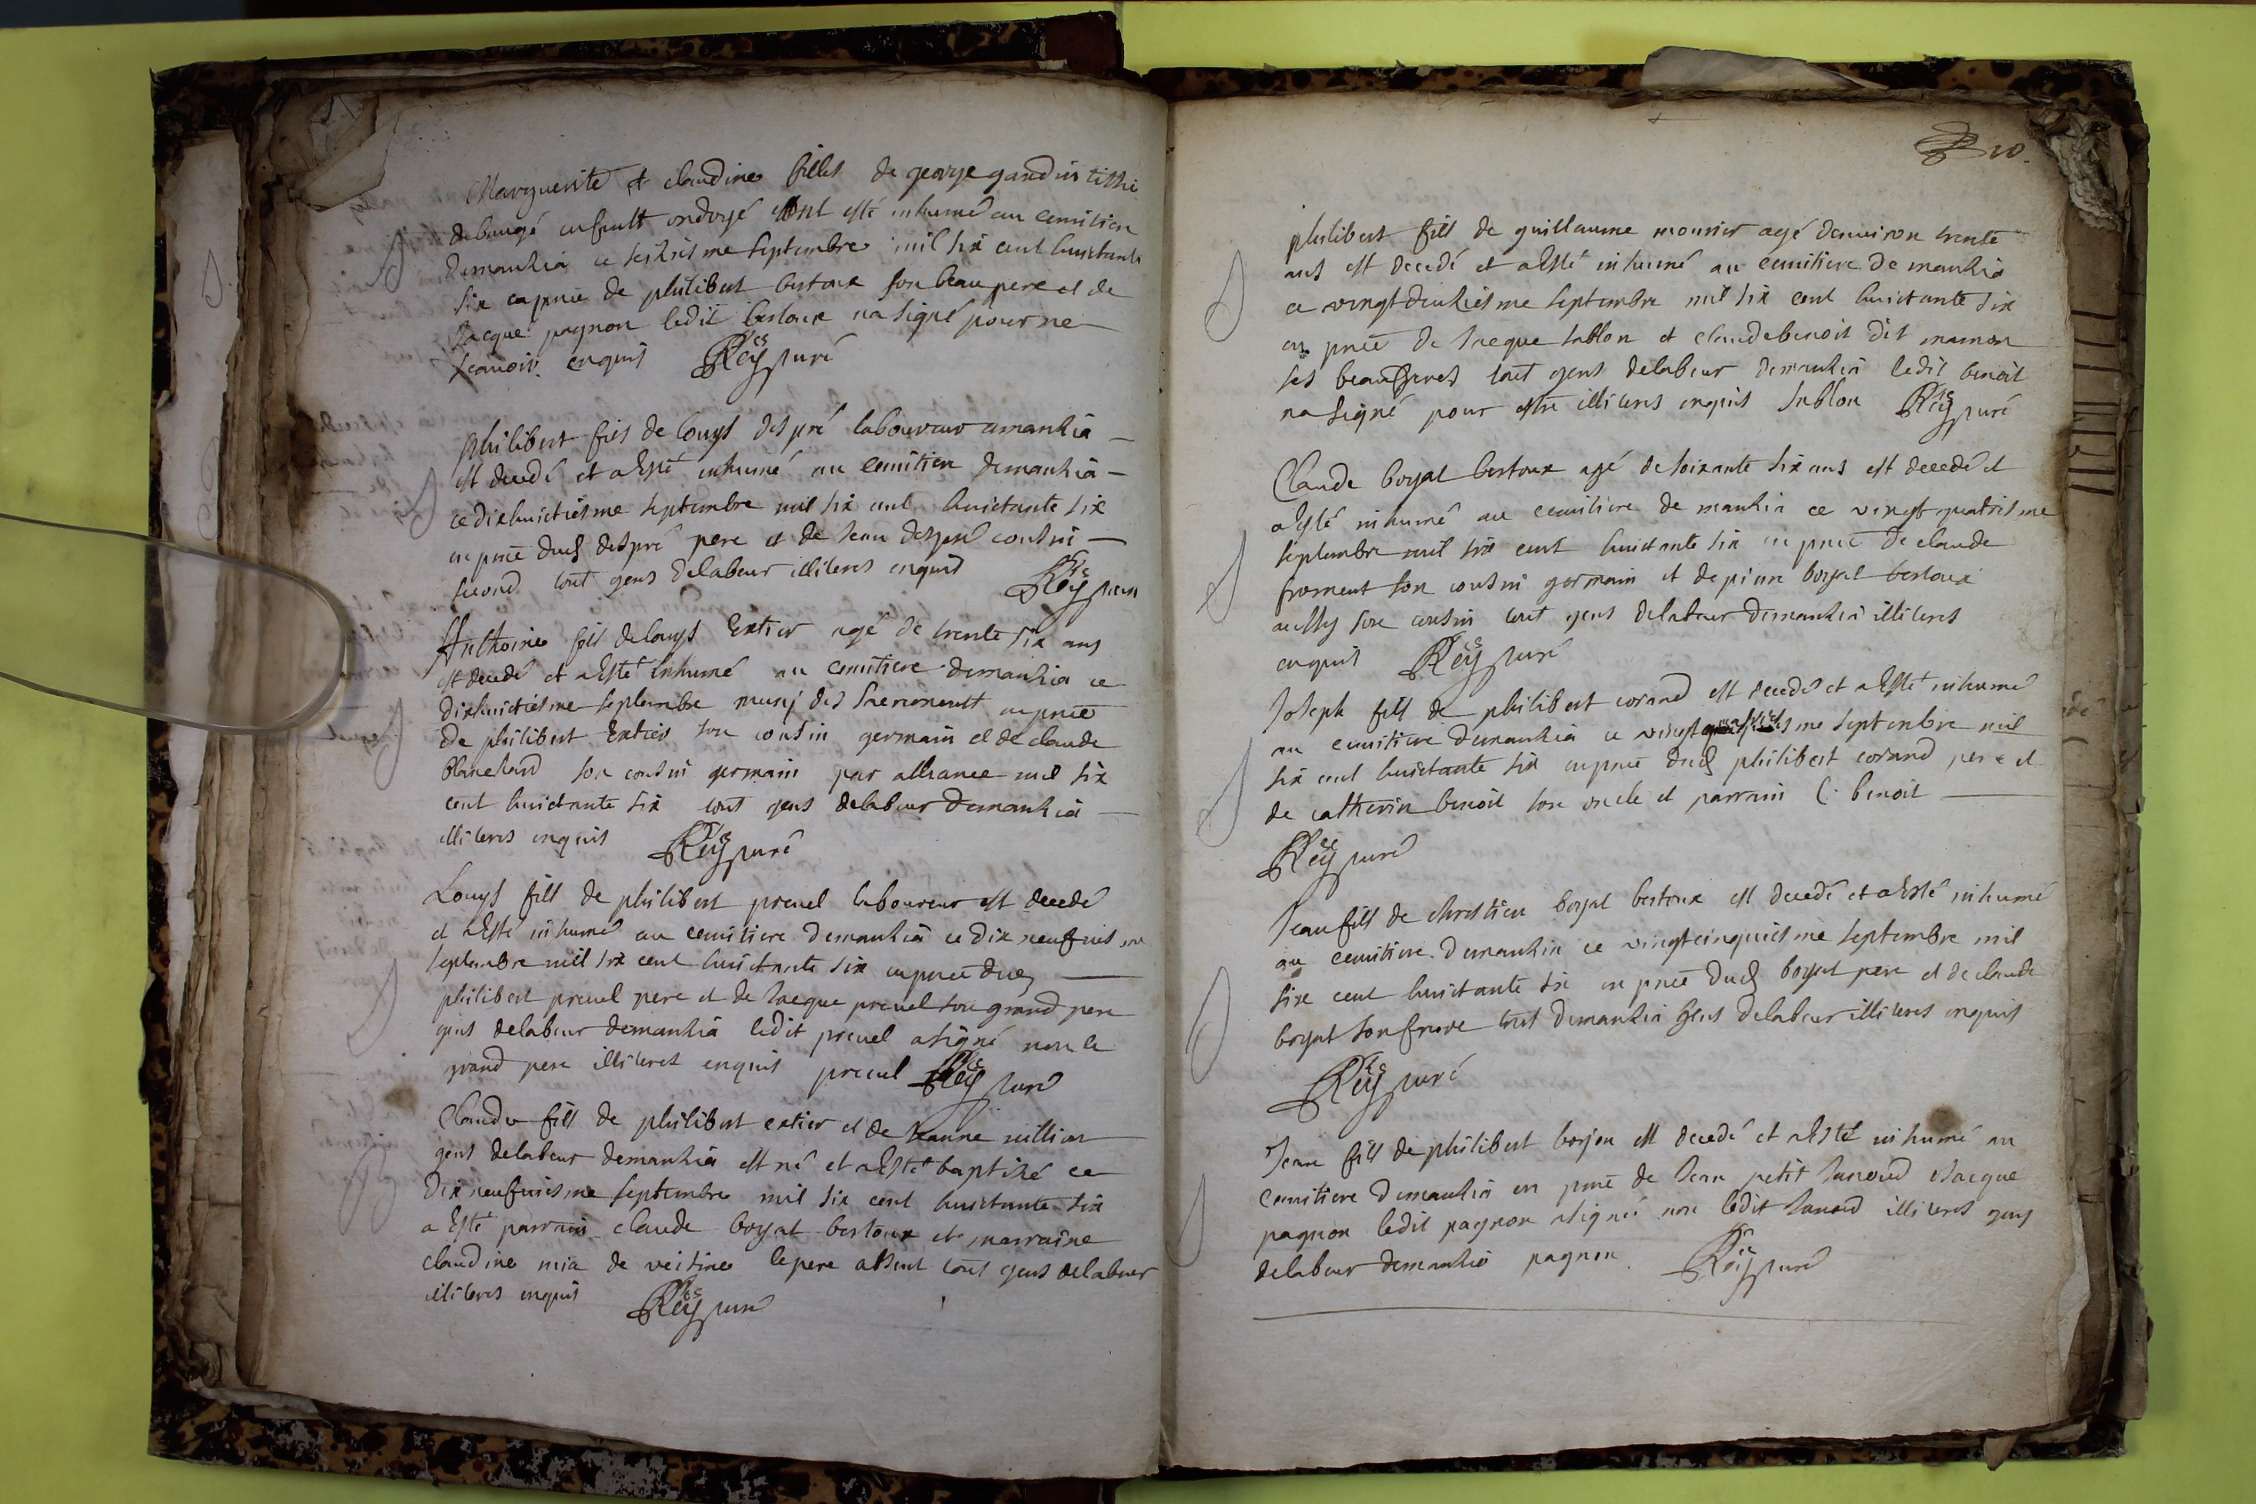 Marguerite et claudine filles de george gandin tissié
debaugé enfantt ondoyé ont esté inhumé au cemitiere
demanzia ce seiziesme septembre mil six cent huictante
six en pnce de philibert bertoux son beau pere et de
Jacque pagnon ledit bertoux na signé pour ne
scavoir enquis Rey curé
philibert fils de louys despré laboureur amanzia
est decedé et a Esté inhumé au cemitiere demanzia
ce dixhuictiesme septembre mil six cent huictante six
en pnce dud despré pere et de Jean despré cousin
second tout gens delabeur illiteres enquis Rey curé
Anthoine fils de louys Extier agé de trente six ans
est decedé et a Esté inhumé au cemitiere demanzia ce
dixhuictiesme septembre muny des sacrementt en pnce
de philibert Extier son cousin germain et de claude
blanchard son cousin germain par alliance mil six
cent huictante six tout gens delabeur demanzia
illiteres enquis Rey curé
Louys fils de philibert preuel laboureur est decedé
et a Esté inhumé au cemitiere demanzia ce dix neufuiesme
septembre mil six cent huictante six en pnce dud
philibert preuel pere et de Jacque preuel son grand pere
gens delabeur demanzia ledit preuel a signé non le
grand pere illiteres enquis preuel Rey curé
Claude fils de philibert extier et de Jeanne
gens delabeur demanzia est né et a Esté baptizé ce
dix neufuiesme septembre mil six cent huictante six
a Esté parrain claude boyat bertoux et marraine
claudine mia de le pere absent tout gens delabeur
illiteres enquis Rey curé
10.
philibert fils de guillaume monnier agé denuiron trente
ans est decedé et a Esté inhumé au cemitiere de manzia
ce vingt deuxiesme septembre mil six cent huictante six
en pnce de Jacque sublon et claude benoit dit mamon
ses beaufreres tout gens delabeur demanzia ledit benoit
na signé pour estre illiteres enquis Sublon Rey curé
Claude boyat bertoux agé de soixante six ans est decedé et
a Esté inhumé au cemitiere de manzia ce vingt quatriesme
septembre mil six cent huictante six en pnce de claude
froment son cousin germain et de pierre boyat bertoux
aussy son cousin tout gens delabeur demanzia illiteres
enquis Rey curé
Joseph fils de philibert corand est decedé et a Esté inhumé
au cemitiere demanzia ce vingt septembre mil
six cent huictante six en pnce dud philibert corand pere et
de catherin benoit son oncle et parrain C. benoit
Rey curé
Jean fils de chrestien boyat bertoux est decedé et a Esté inhumé
au cemitiere demanzia ce vingtcinquiesme septembre mil
six cent huictante six en pnce dud boyat pere et de claude
boyat son frere tous demanzia gens delabeur illiteres enquis
Rey curé
Jean fils de philibert borjon est decedé et a Esté inhumé au
cemitiere demanzia en pnce de Jean petit Janoud et Jacque
pagnon ledit pagnon a signé non ledit Janoud illiteres gens
delabeur demanzia pagnon Rey curé